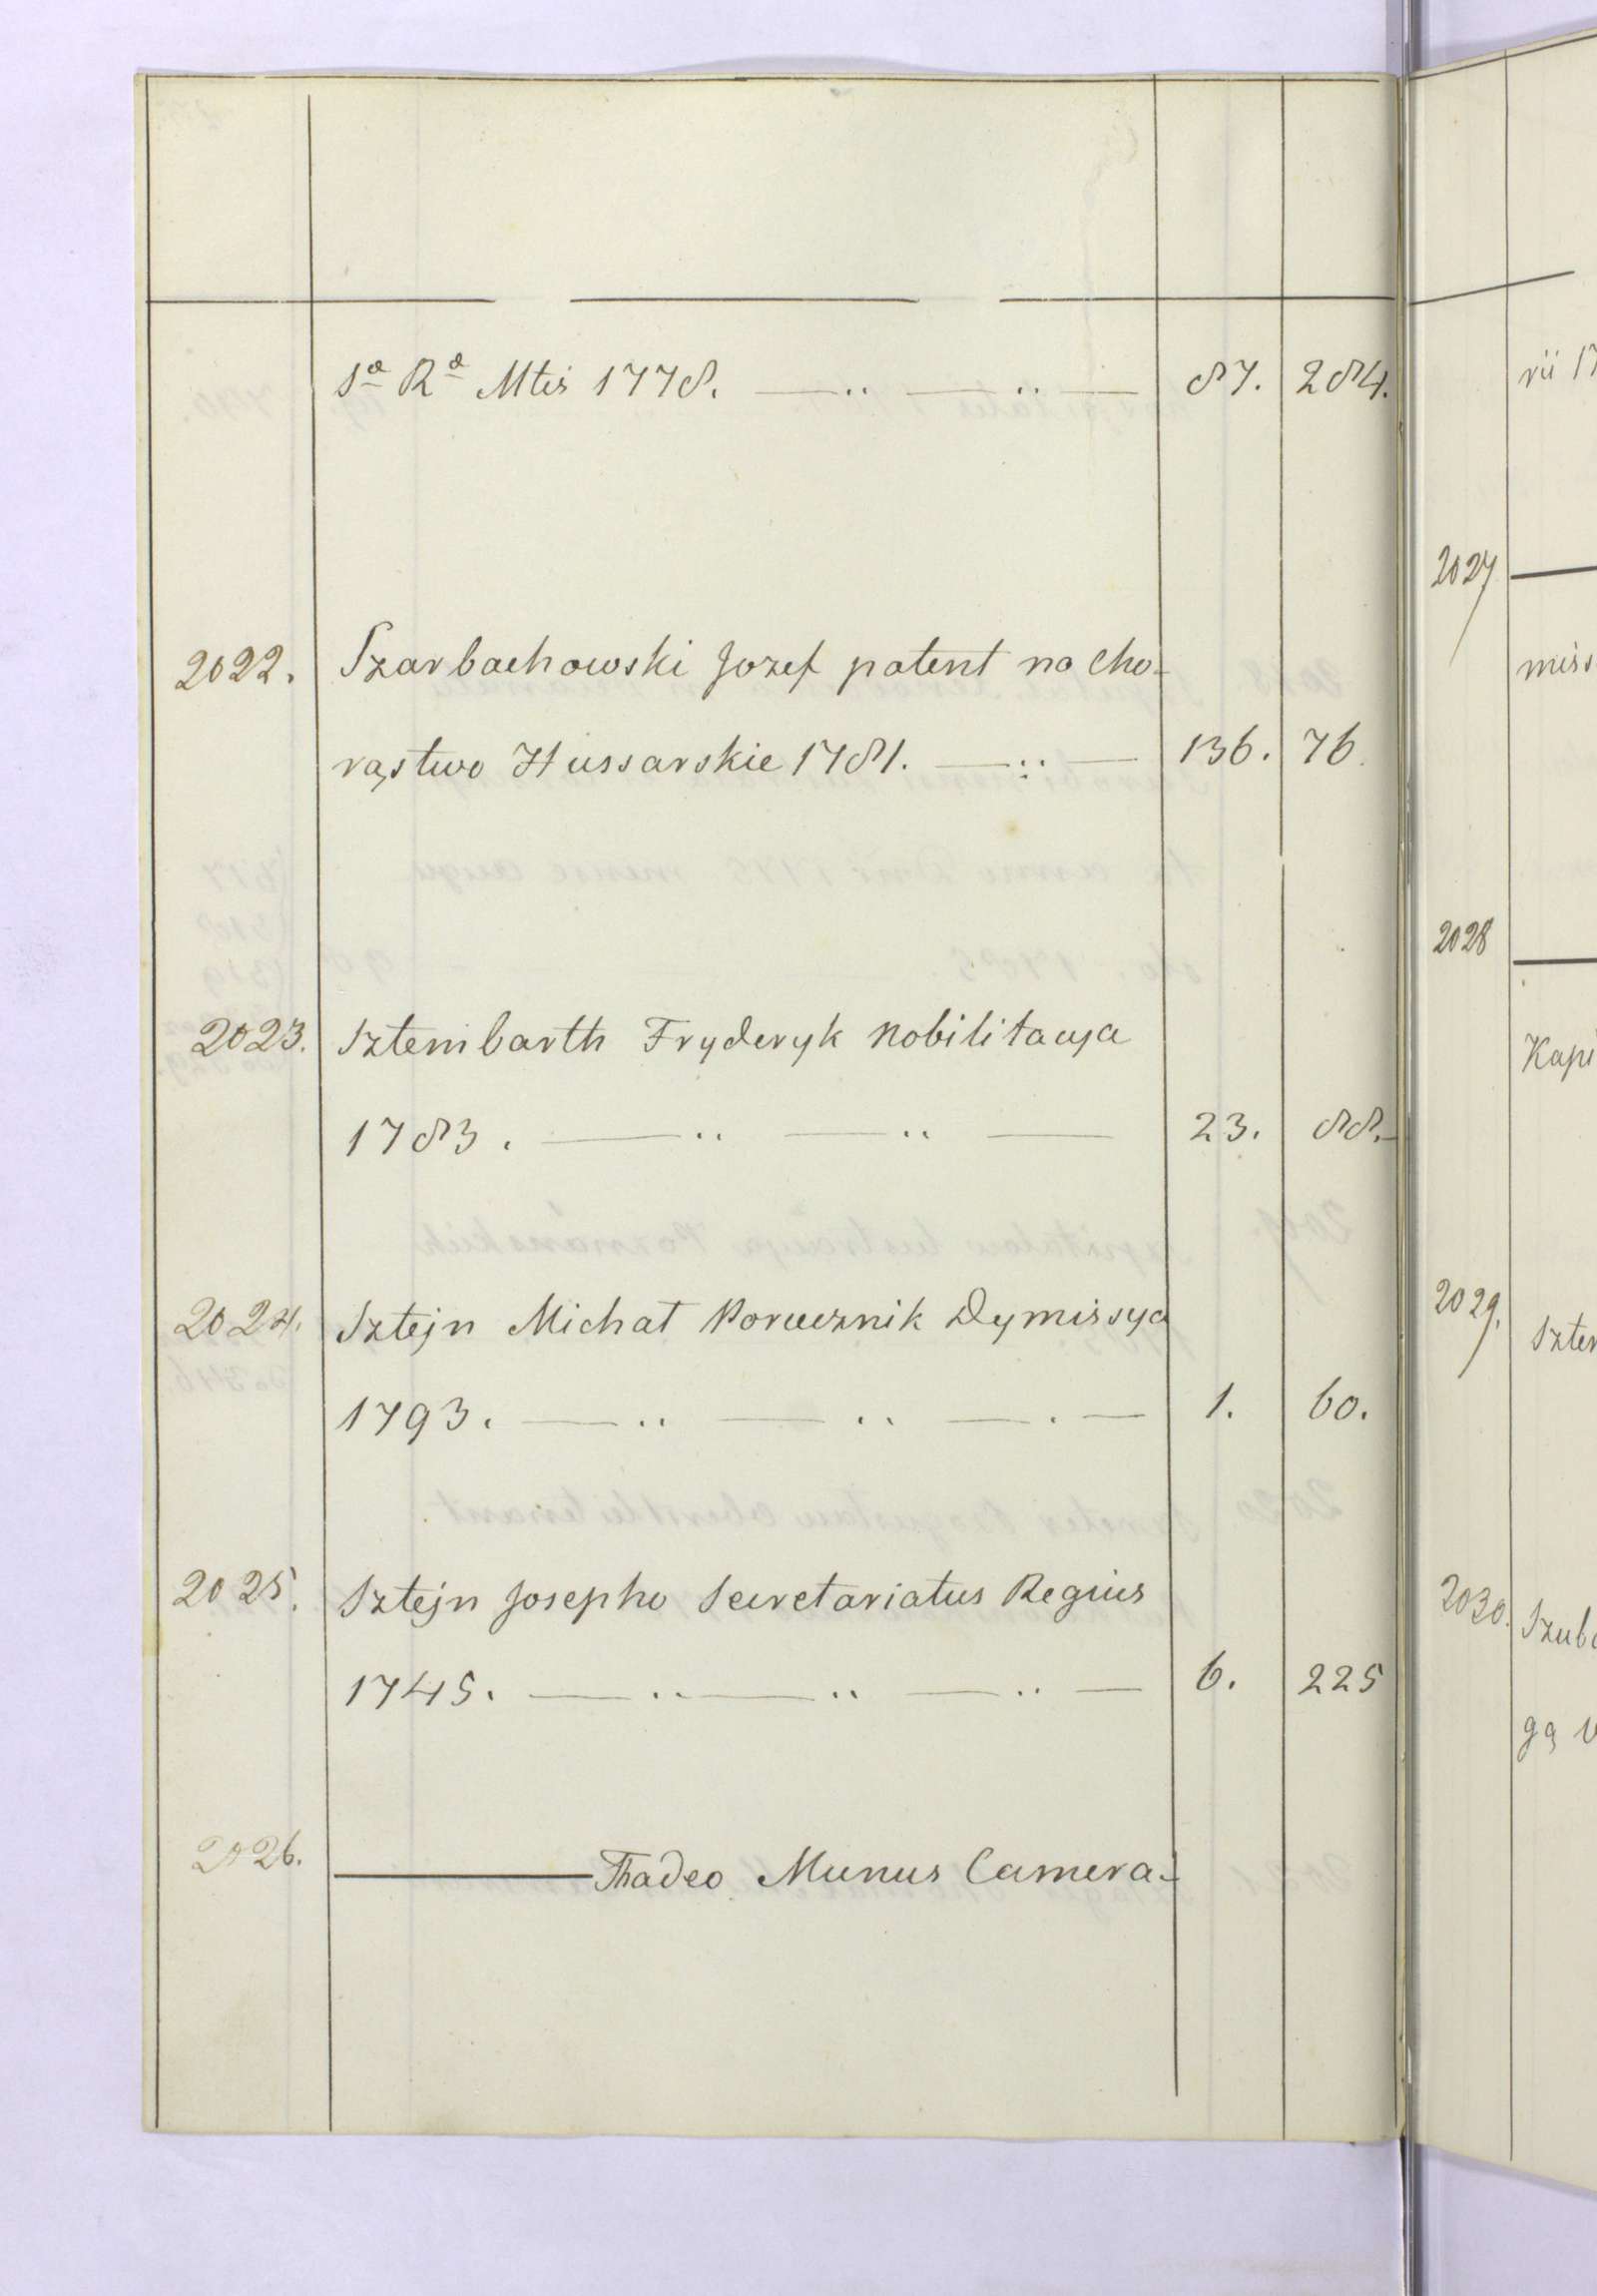 Sæ Ræ Mtis 1778. 87. 284.
2022. Szarbachowski Jozef patent na Cho-
rąstwo Hussarskie 1781. 136. 76.
2023. Sztembarth Fryderyk Nobilitacya
1783. 23. 88.
2024. Sztejn Michał Porucznik Dymissya
1793. 1. 60.
2025. Sztejn Josepho Secretariatus Regius
1745. 6. 225
2026. Thadeo Munus Camera-
rii 17
2027
miss
2028
Kapi
2029. Szter
2030. Szub
gą